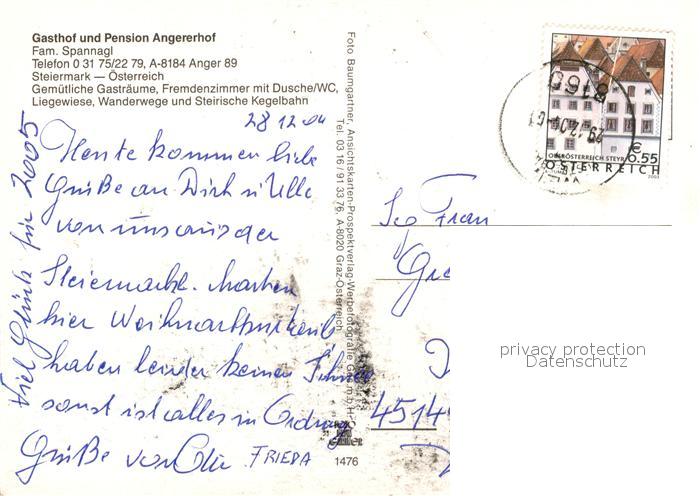 Gasthof und Pension Angererhof
Fam. Spannagl
Telefon 0 31 75/22 79, A-8184 Anger 89
Steiermark — Österreich
Gemütliche Gasträume, Fremdenzimmer mit Dusche/WC,
Liegewiese, Wanderwege und Steirische Kegelbahn
28 12 04
Heute kommen liebe
Grüße an Dich u Ulle
von uns aus der
Steiermark. machen
hier Weihnachtsurlaub
haben leider keinen Schnee
sonst ist alles in Ordnung
Grüße von FRIEDA
Viel Glück für 2005
Foto Baumgartner, Ansichtskarten-Prospektverlag-Werbefotografie Ges.m.b.H.
Tel. 03 16 / 91 33 76, A-8020 Graz-Österreich
1476
8160
OBERÖSTERREICH STEYR
€ 0,55
ÖSTERREICH
Frau
4514
privacy protection
Datenschutz